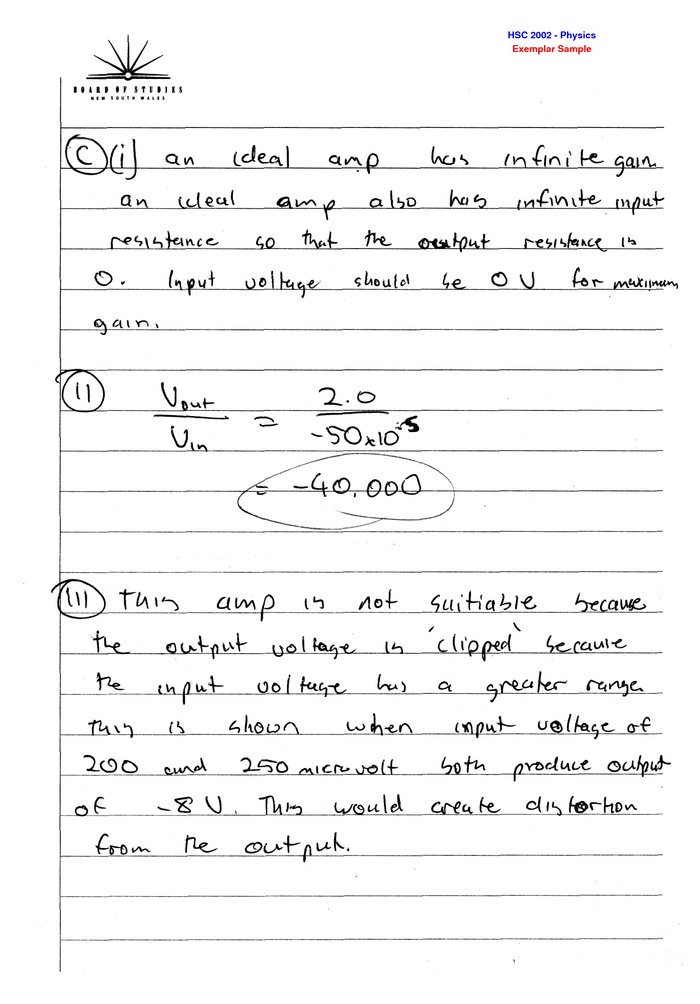 HSC 2002 - Physics
Exemplar Sample
BOARD OF STUDIES
NEW SOUTH WALES
C (i) an ideal amp has infinite gain
an ideal amp also has infinite input
resistance so that the output resistance is
0. Input voltage should be 0 V for maximum
gain.
(ii) Vout / Vin = 2.0 / -50x10^-5
= -40,000
(iii) This amp is not suitiable because
the output voltage is 'clipped' because
the input voltage has a greater range
this is shown when input voltage of
200 and 250 microvolt both produce output
of -8 V. This would create distortion
from the output.